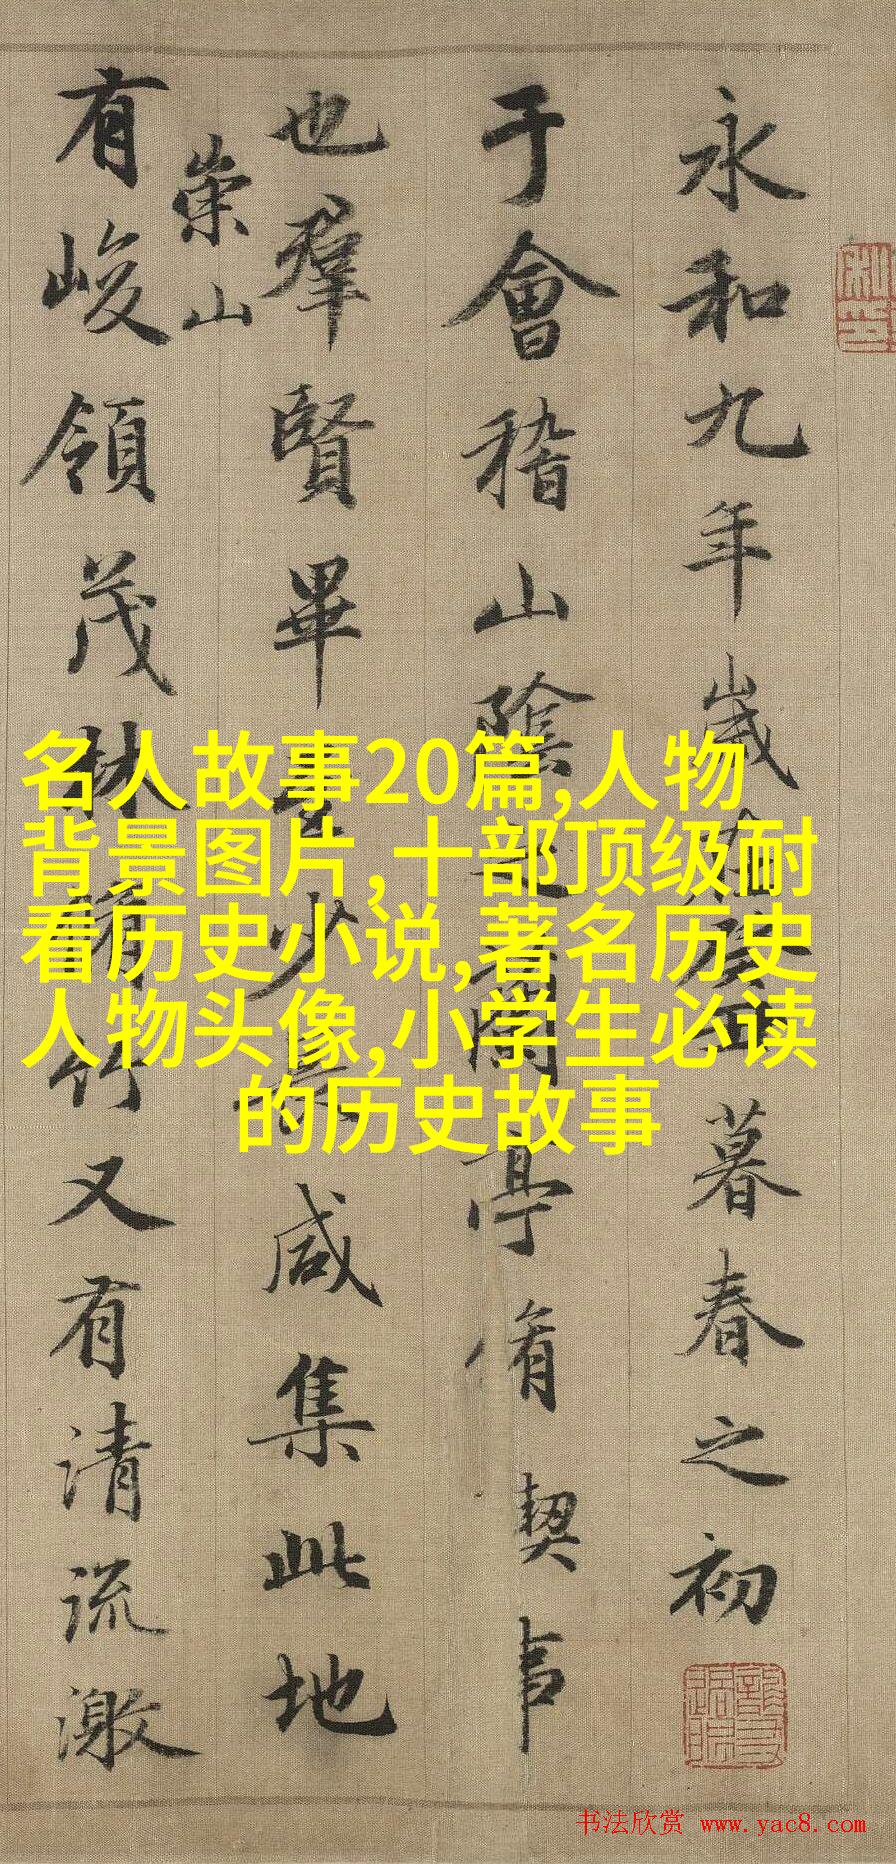 永和九年歲在癸丑暮春之初
于會稽山陰之蘭亭脩稧事
也羣賢畢至少長咸集此地
有崇山峻領茂林脩竹又有清流激
名人故事20篇,人物
背景图片,十部顶级耐
看历史小说,著名历史
人物头像,小学生必读
的历史故事
书法欣赏 www.yac8.com